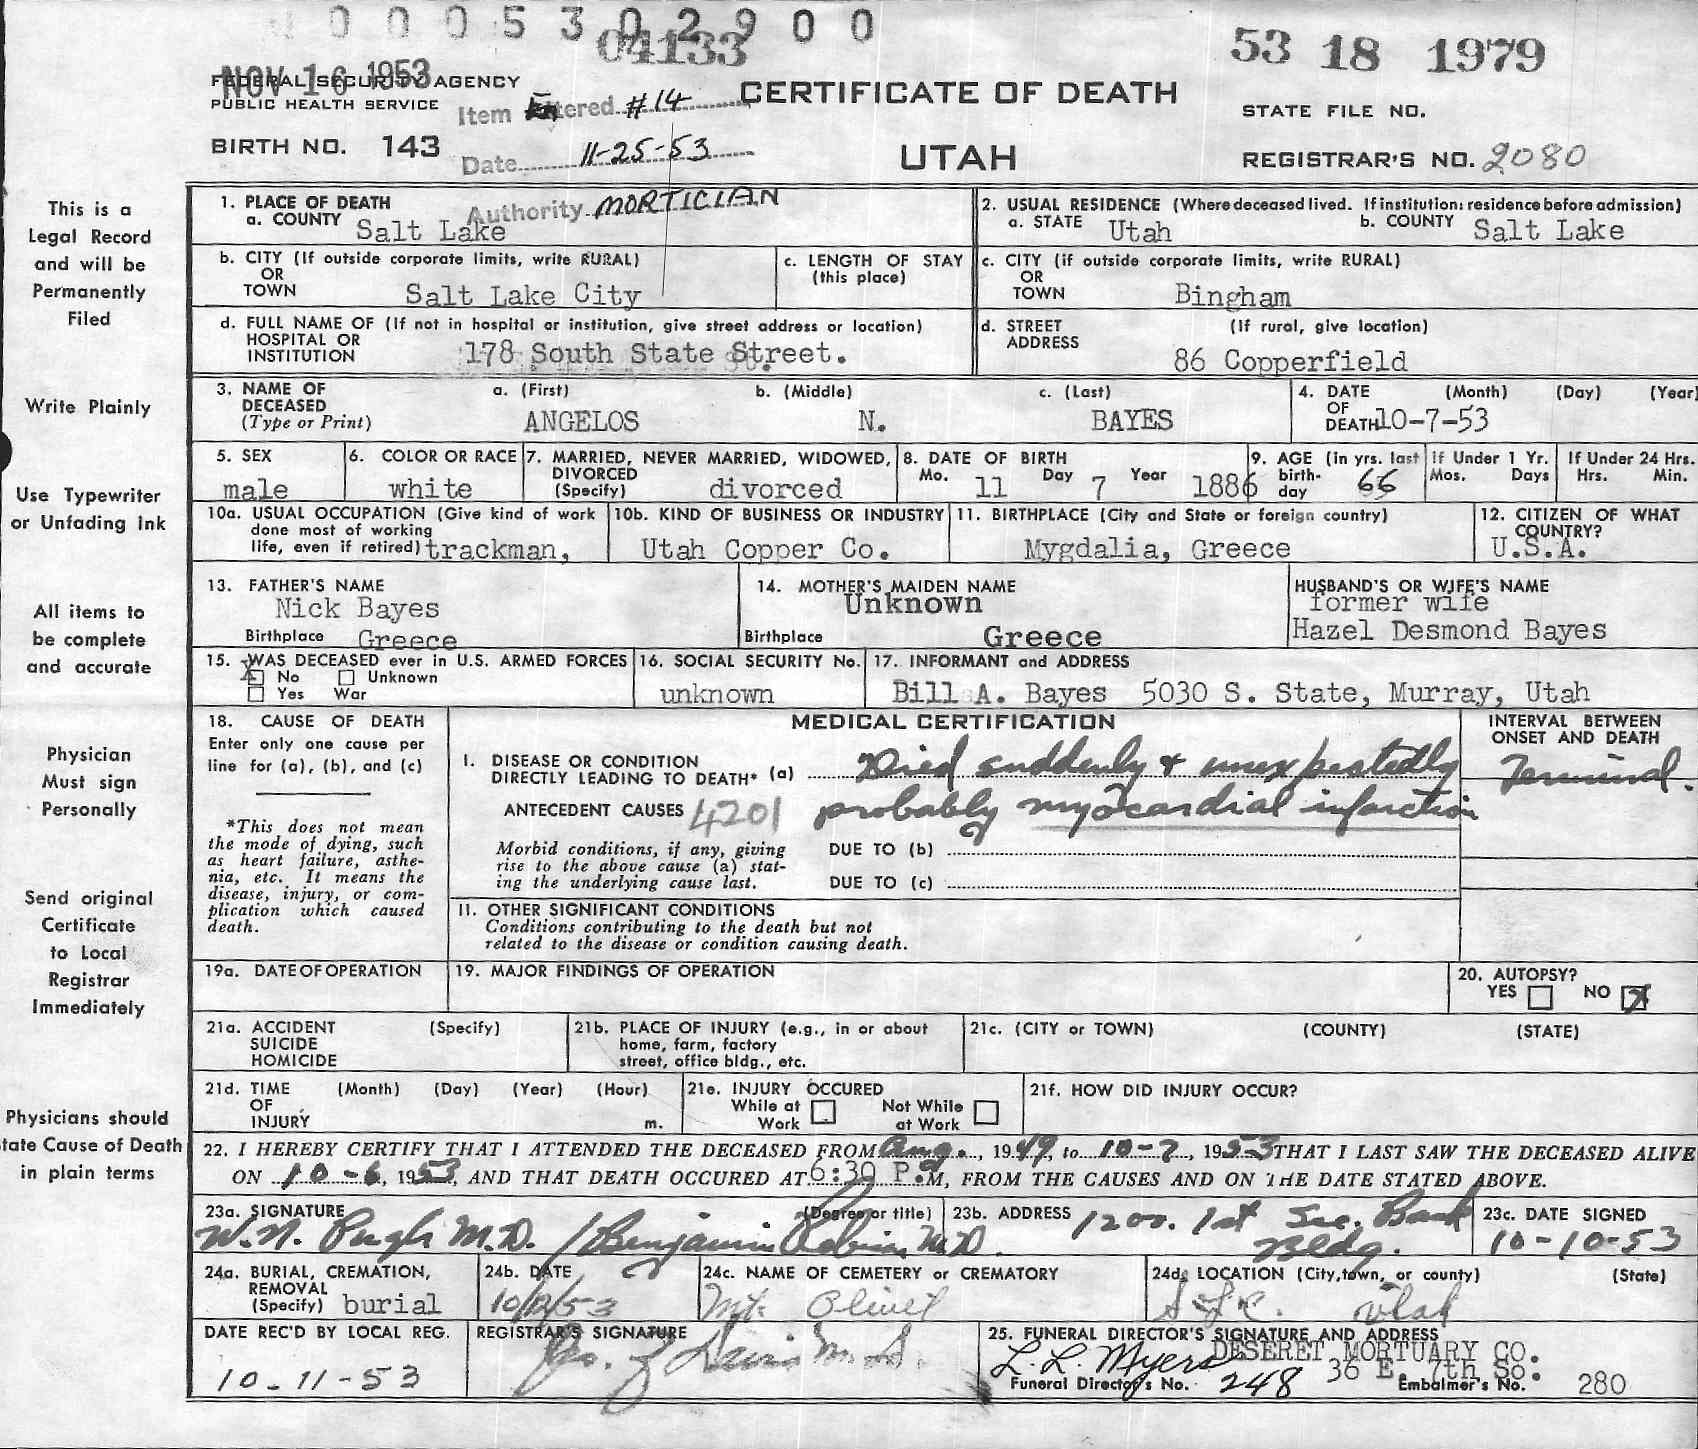 0 0 0 5 3 0 2 9 0 0
04133
53 18 1979
NOV 16 1953
FEDERAL SECURITY AGENCY
PUBLIC HEALTH SERVICE
Item Entered #14
CERTIFICATE OF DEATH
STATE FILE NO.
BIRTH NO. 143
Date 11-25-53
UTAH
REGISTRAR'S NO. 2080
This is a
Legal Record
and will be
Permanently
Filed
Write Plainly
Use Typewriter
or Unfading Ink
All items to
be complete
and accurate
Physician
Must sign
Personally
Send original
Certificate
to Local
Registrar
Immediately
Physicians should
tate Cause of Death
in plain terms
1. PLACE OF DEATH
a. COUNTY Salt Lake
Authority MORTICIAN
2. USUAL RESIDENCE (Where deceased lived. If institution: residence before admission)
a. STATE Utah b. COUNTY Salt Lake
b. CITY (If outside corporate limits, write RURAL)
OR
TOWN Salt Lake City
c. LENGTH OF STAY
(this place)
c. CITY (if outside corporate limits, write RURAL)
OR
TOWN Bingham
d. FULL NAME OF (If not in hospital or institution, give street address or location)
HOSPITAL OR
INSTITUTION 178 South State Street.
d. STREET (If rural, give location)
ADDRESS
86 Copperfield
3. NAME OF DECEASED (Type or Print)
a. (First) b. (Middle) c. (Last)
ANGELOS N. BAYES
4. DATE (Month) (Day) (Year)
OF
DEATH 10-7-53
5. SEX
male
6. COLOR OR RACE
white
7. MARRIED, NEVER MARRIED, WIDOWED,
DIVORCED
(Specify) divorced
8. DATE OF BIRTH
Mo. 11 Day 7 Year 1886
9. AGE (in yrs. last
birth-
day 66
If Under 1 Yr.
Mos. Days
If Under 24 Hrs.
Hrs. Min.
10a. USUAL OCCUPATION (Give kind of work
done most of working
life, even if retired) trackman,
10b. KIND OF BUSINESS OR INDUSTRY
Utah Copper Co.
11. BIRTHPLACE (City and State or foreign country)
Mygdalia, Greece
12. CITIZEN OF WHAT
COUNTRY?
U.S.A.
13. FATHER'S NAME
Nick Bayes
Birthplace Greece
14. MOTHER'S MAIDEN NAME
Unknown
Birthplace Greece
HUSBAND'S OR WIFE'S NAME
former wife
Hazel Desmond Bayes
15. WAS DECEASED ever in U.S. ARMED FORCES
X No Unknown
Yes War
16. SOCIAL SECURITY No.
unknown
17. INFORMANT and ADDRESS
Bill A. Bayes 5030 S. State, Murray, Utah
18. CAUSE OF DEATH
Enter only one cause per
line for (a), (b), and (c)
*This does not mean
the mode of dying, such
as heart failure, asthe-
nia, etc. It means the
disease, injury, or com-
plication which caused
death.
MEDICAL CERTIFICATION
I. DISEASE OR CONDITION
DIRECTLY LEADING TO DEATH* (a) Died suddenly & unexpectedly
ANTECEDENT CAUSES 4201 probably myocardial infarction
Morbid conditions, if any, giving
rise to the above cause (a) stat-
ing the underlying cause last.
DUE TO (b)
DUE TO (c)
INTERVAL BETWEEN
ONSET AND DEATH
Terminal.
11. OTHER SIGNIFICANT CONDITIONS
Conditions contributing to the death but not
related to the disease or condition causing death.
19a. DATE OF OPERATION
19. MAJOR FINDINGS OF OPERATION
20. AUTOPSY?
YES NO X
21a. ACCIDENT (Specify)
SUICIDE
HOMICIDE
21b. PLACE OF INJURY (e.g., in or about
home, farm, factory
street, office bldg., etc.
21c. (CITY or TOWN) (COUNTY) (STATE)
21d. TIME (Month) (Day) (Year) (Hour)
OF
INJURY m.
21e. INJURY OCCURED
While at Work Not While at Work
21f. HOW DID INJURY OCCUR?
22. I HEREBY CERTIFY THAT I ATTENDED THE DECEASED FROM Aug., 1949, to 10-7, 1953 THAT I LAST SAW THE DECEASED ALIVE
ON 10-6, 1953, AND THAT DEATH OCCURED AT 6:30 P.M, FROM THE CAUSES AND ON THE DATE STATED ABOVE.
23a. SIGNATURE (Degree or title)
W.N. Pugh M.D. / Benjamin Robison M.D.
23b. ADDRESS 1200. 1st Sec. Bank
Bldg.
23c. DATE SIGNED
10-10-53
24a. BURIAL, CREMATION,
REMOVAL
(Specify) burial
24b. DATE
10/12/53
24c. NAME OF CEMETERY or CREMATORY
Mt. Olivet
24d. LOCATION (City, town, or county) (State)
S.L.C. Utah
DATE REC'D BY LOCAL REG.
10-11-53
REGISTRAR'S SIGNATURE
Davis M.D.
25. FUNERAL DIRECTOR'S SIGNATURE AND ADDRESS
L. L. Myers DESERET MORTUARY CO.
36 E. 7th So.
Funeral Director's No. 248 Embalmer's No. 280